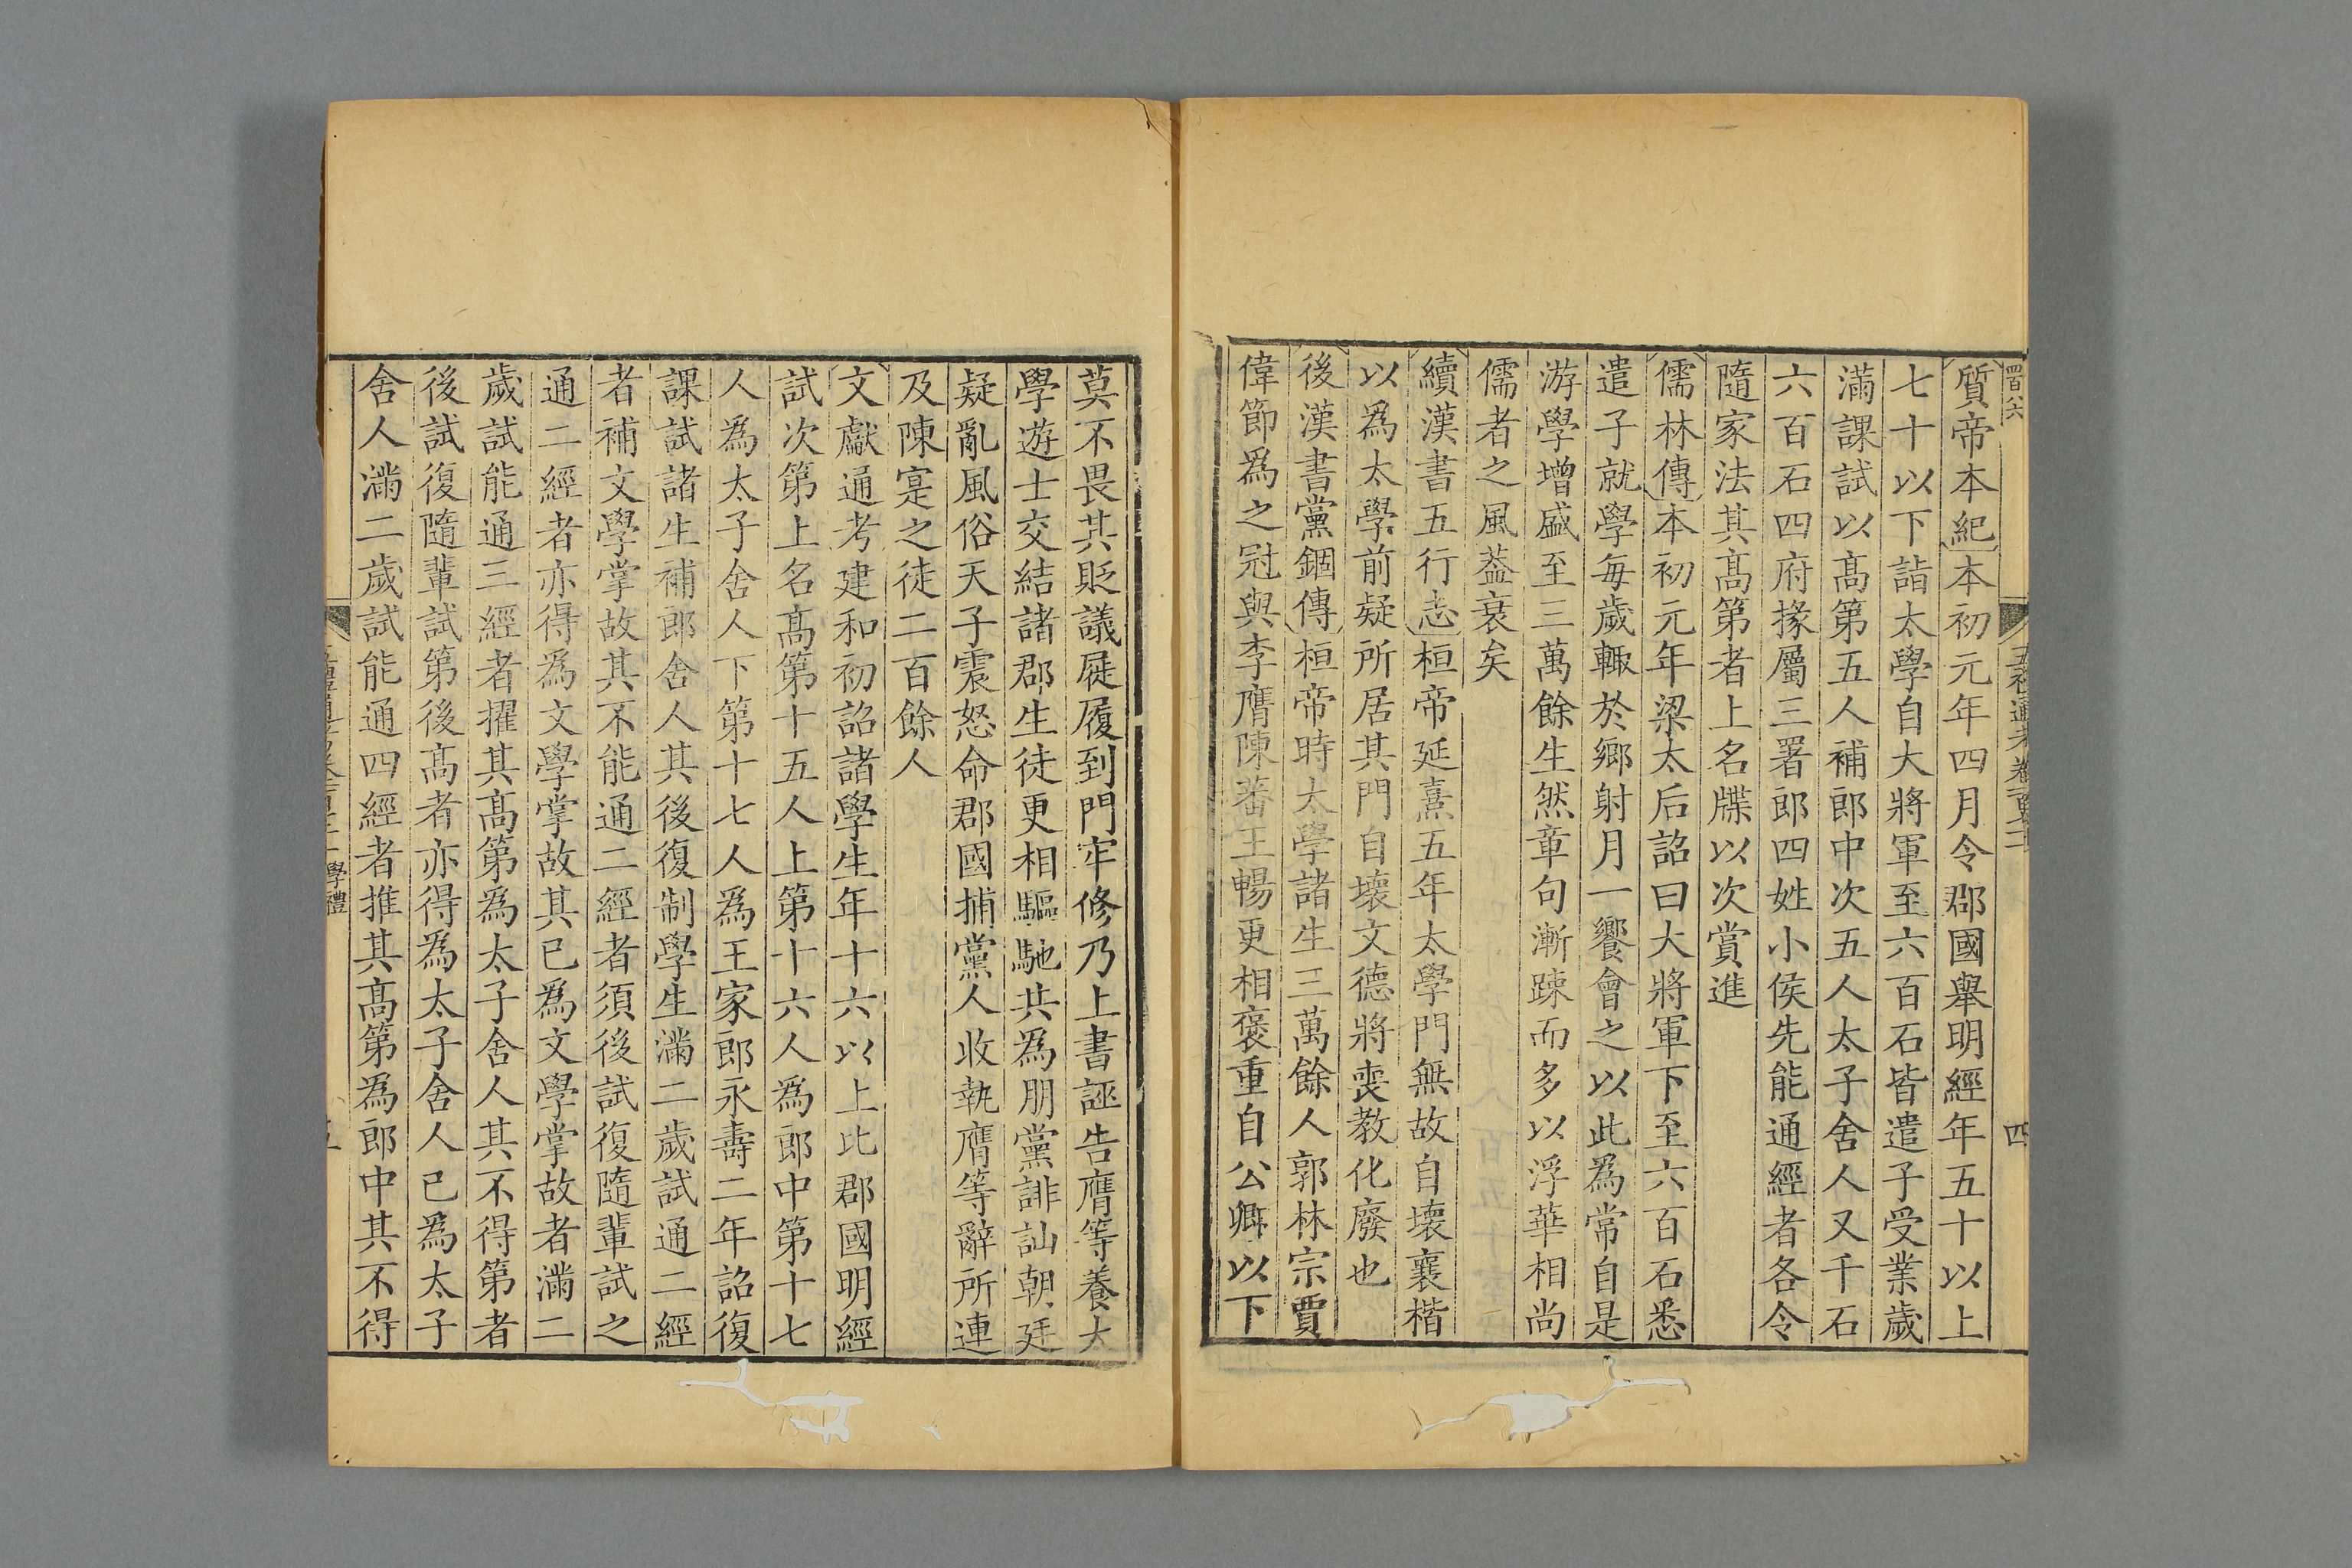 質帝本紀本初元年四月令郡國舉明經年五十以上
七十以下詣太學自大將軍至六百石皆遣子受業歲
滿課試以髙第五人補郎中次五人太子舍人又千石
六百石四府掾屬三署郎四姓小侯先能通經者各令
隨家法其髙第者上名牒以次賞進
儒林傳本初元年梁太后詔曰大將軍下至六百石悉
遣子就學每歲輙於鄉射月一饗會之以此為常自是
游學增盛至三萬餘生然章句漸疎而多以浮華相尚
儒者之風葢衰矣
續漢書五行志桓帝延熹五年太學門無故自壞襄楷
以為太學前疑所居其門自壞文德將喪教化廢也
後漢書黨錮傳桓帝時太學諸生三萬餘人郭林宗賈
偉節為之冠與李膺陳蕃王暢更相褒重自公卿以下
莫不畏其貶議屣履到門牢修乃上書誣告膺等養太
學遊士交結諸郡生徒更相驅馳共為朋黨誹訕朝廷
疑亂風俗天子震怒命郡國捕黨人收執膺等辭所連
及陳寔之徒二百餘人
文獻通考建和初詔諸學生年十六以上比郡國明經
試次第上名髙第十五人上第十六人為郎中第十七
人為太子舍人下第十七人為王家郎永壽二年詔復
課試諸生補郎舍人其後復制學生滿二歲試通二經
者補文學掌故其不能通二經者須後試復隨輩試之
通二經者亦得為文學掌故其已為文學掌故者滿二
歲試能通三經者擢其髙第為太子舍人其不得第者
後試復隨輩試第後髙者亦得為太子舍人已為太子
舍人滿二歲試能通四經者推其髙第為郎中其不得
學禮